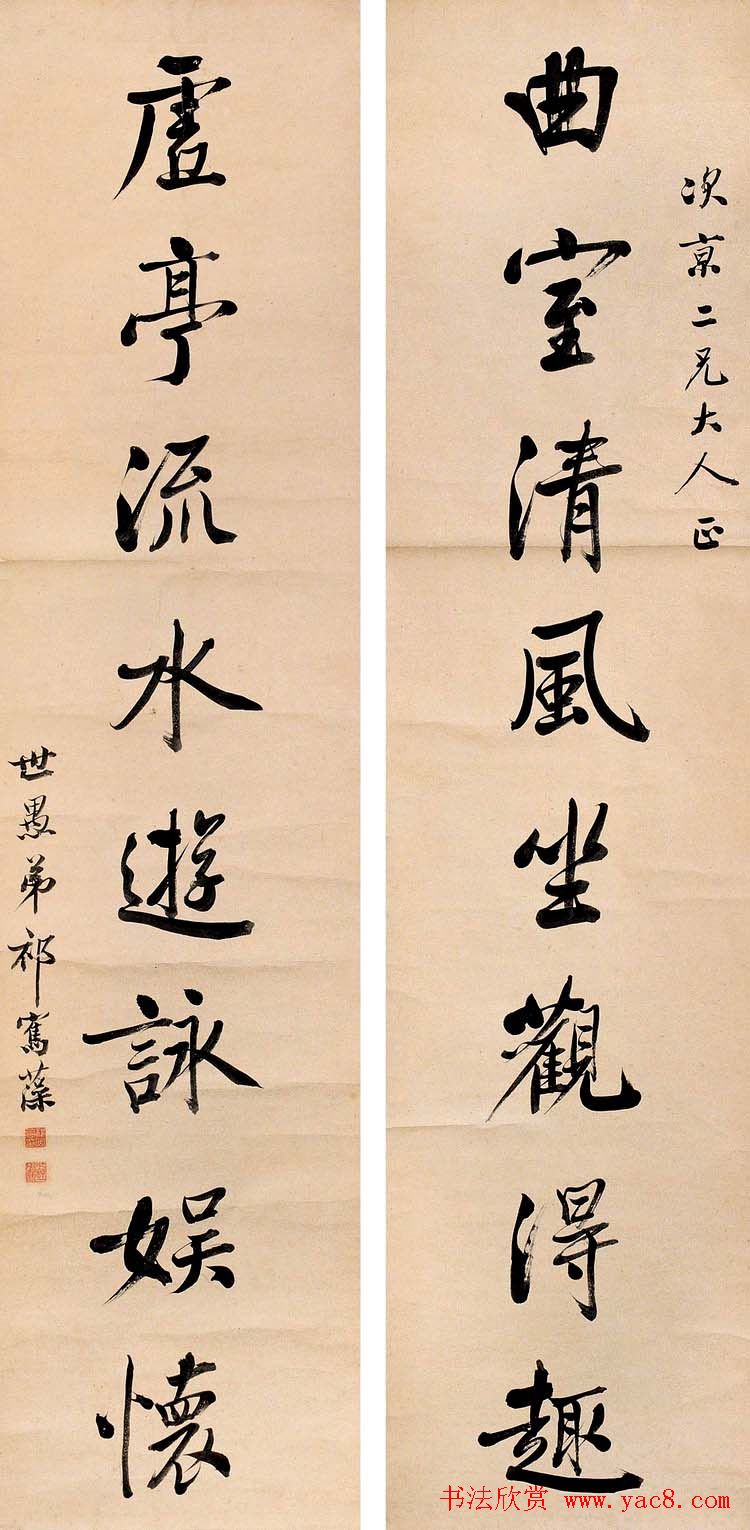 次京二兄大人正
曲室清風坐觀得趣
虛亭流水遊詠娛懷
世愚弟祁寯藻
书法欣赏 www.yac8.com